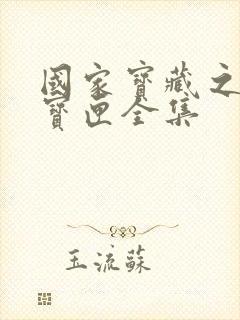 國家寶藏之
寶匣全集
玉流蘇